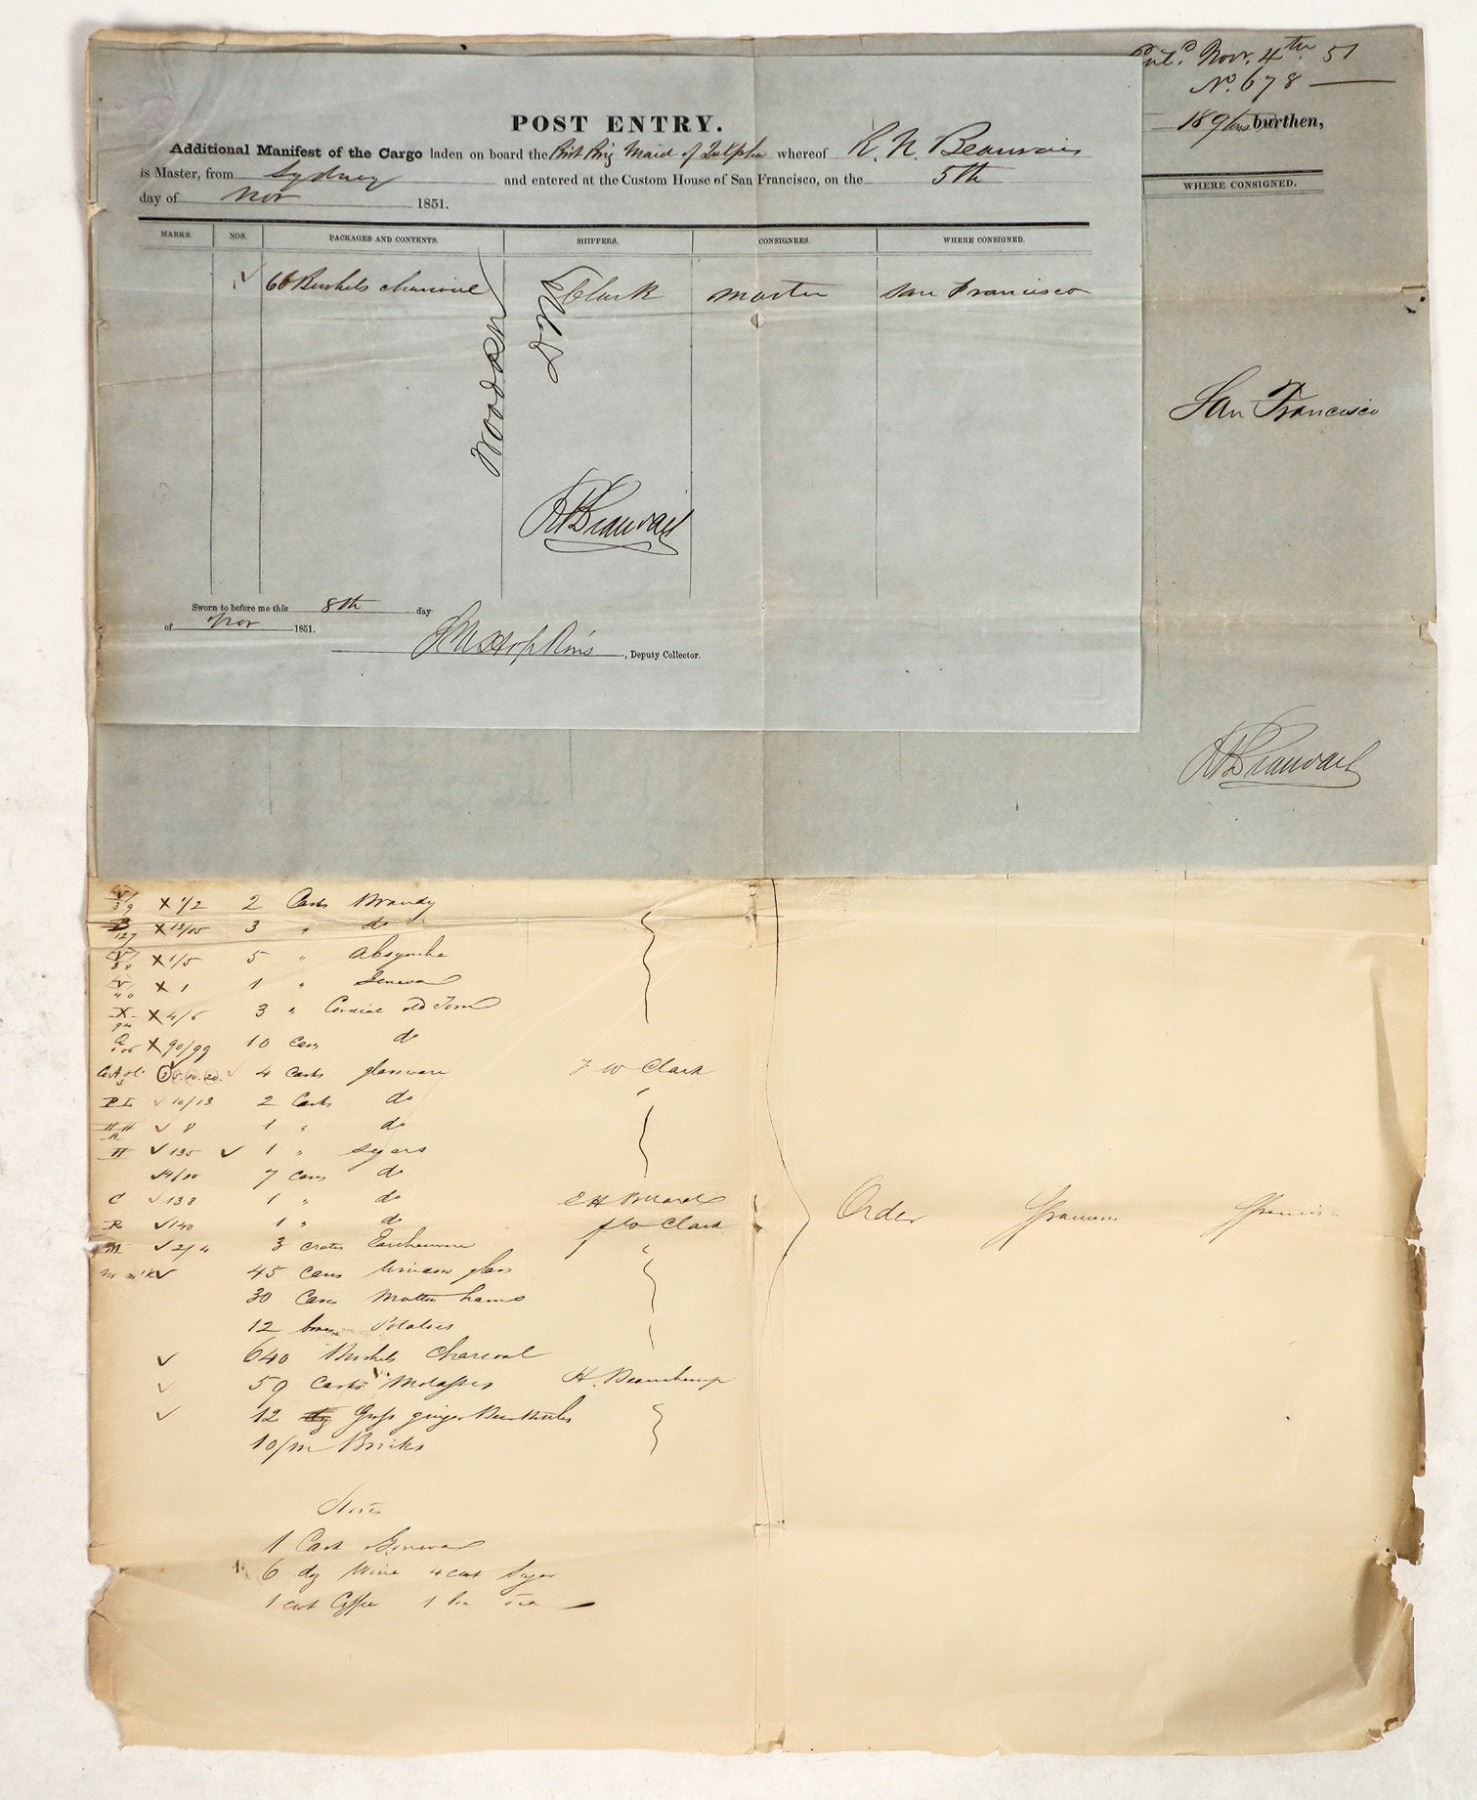 Nov. 4th 51
No. 678
189 tons burthen,
WHERE CONSIGNED.
San Francisco
POST ENTRY.
Additional Manifest of the Cargo laden on board the Brit Brig Maid of whereof R. N. Beauvais
is Master, from Sydney and entered at the Custom House of San Francisco, on the 5th
day of Nov 1851.
MARKS. NOS. PACKAGES AND CONTENTS. SHIPPERS. CONSIGNEES. WHERE CONSIGNED.
Bushels charcoal Clark master San Francisco
Sworn to before me this 8th day
of Nov 1851.
Hopkins, Deputy Collector.
X 1/2 2 Casks Brandy
3 " do
X 1/5 5 " Absynthe
X 1 1 " Geneva
X 4/6 3 " old Tom
X 90/99 10 cases do
4 casks glassware J W Clark
10/13 2 Casks do "
8 1 " do
H 135 1 " segars
7 cases do
C 138 1 " do
R 140 1 " do J W Clark
M 2/4 3 crates Earthenware "
45 cases Window glass
30 Cases Mutton hams
12 boxes Potatoes
640 Bushels Charcoal
59 Casks Molasses H. Beauchamp
12 Gross ginger Beer Bottles
10/m Bricks
Order
Stores
1 Cask Geneva
6 dz Wine 4 cwt Sugar
1 cwt Coffee 1 box Tea